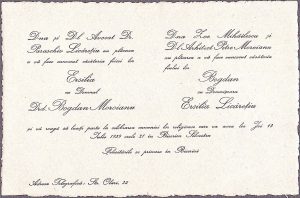 Dna și Dl. Avocat Dr.
Paraschiv Licărețiu au plăcerea
a vă face cunoscut căsătoria fiicei lor
Ersilia
cu Domnul
Bogdan Moroianu
Dna Zoe Mihăilescu și
Dl. Arhitect Petre Moroianu
au plăcerea a vă face cunoscut căsătoria
fiului lor
Bogdan
cu Domnișoara
Ersilia Licărețiu
și vă roagă să luați parte la celebrarea cununiei lor religioase care va avea loc Joi 13
Iulie 1939 orele 21 în Biserica
Felicitările se primesc în Biserică
Adresa Telegrafică: Str. 22